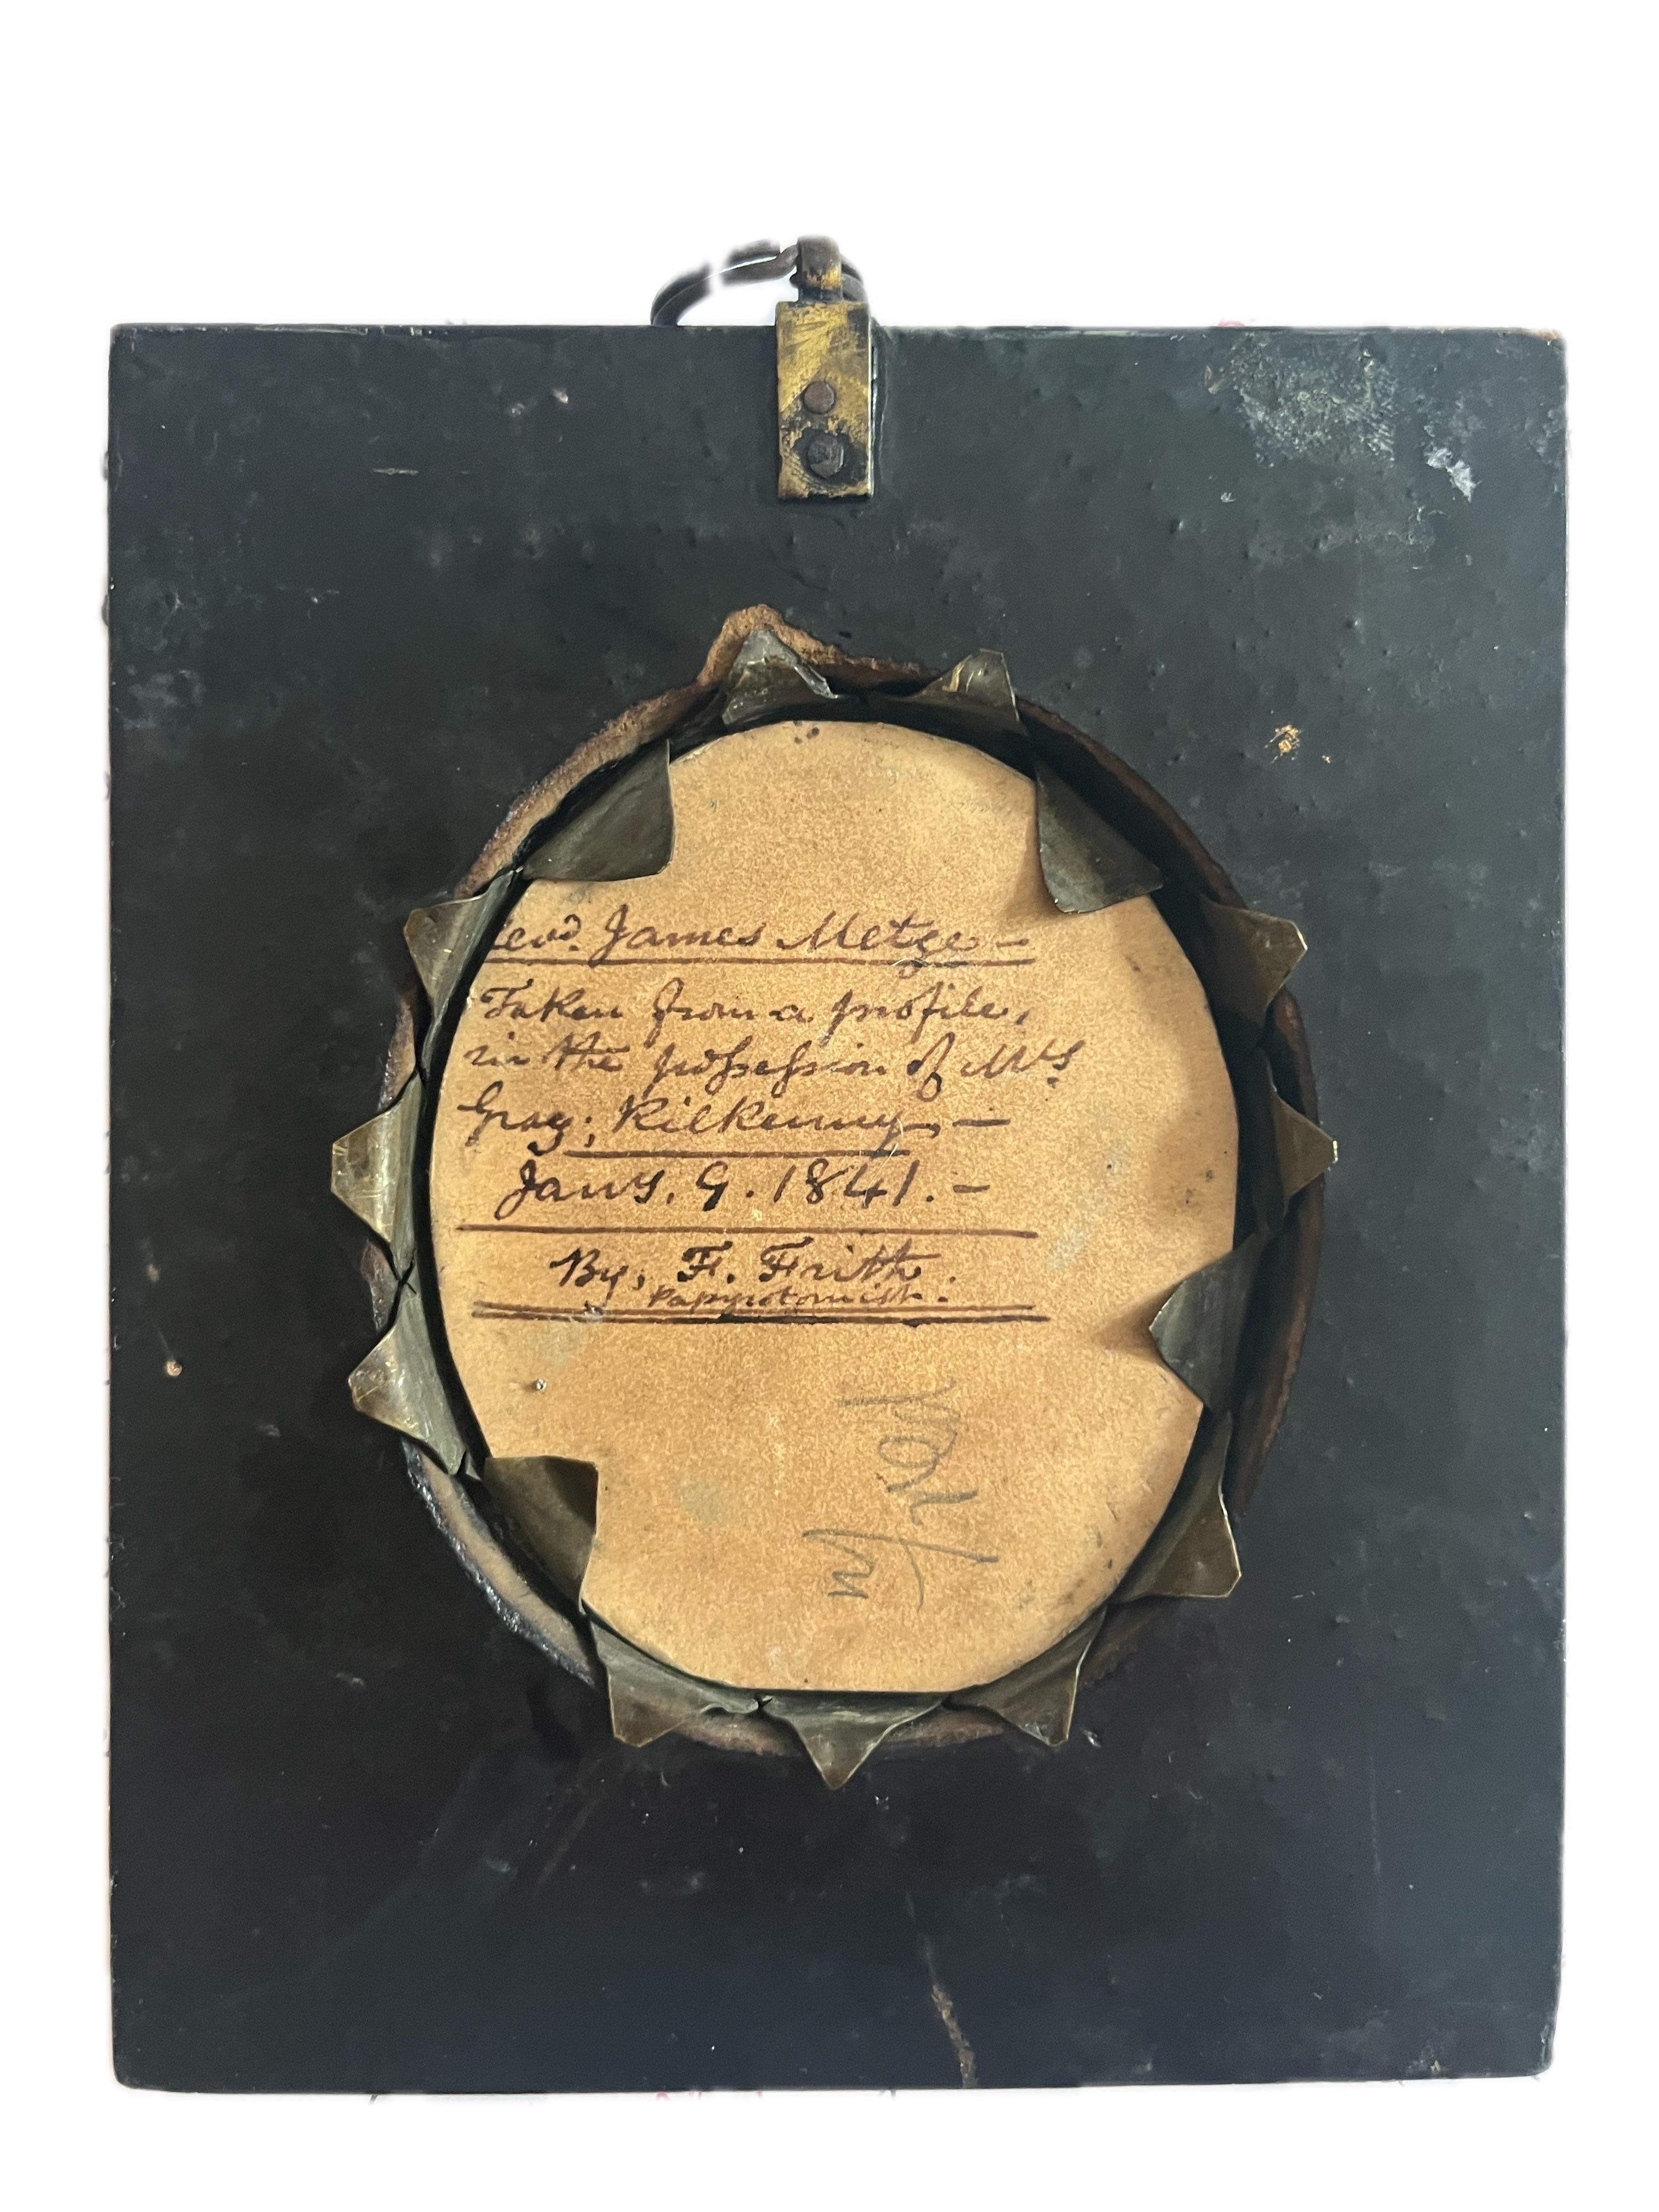 Revd. James Metge –
Taken from a profile,
in the possession of Mrs
Gray; Kilkenny, –
Jany. 9. 1841. –
By, F. Frith.
Papyrotomist.